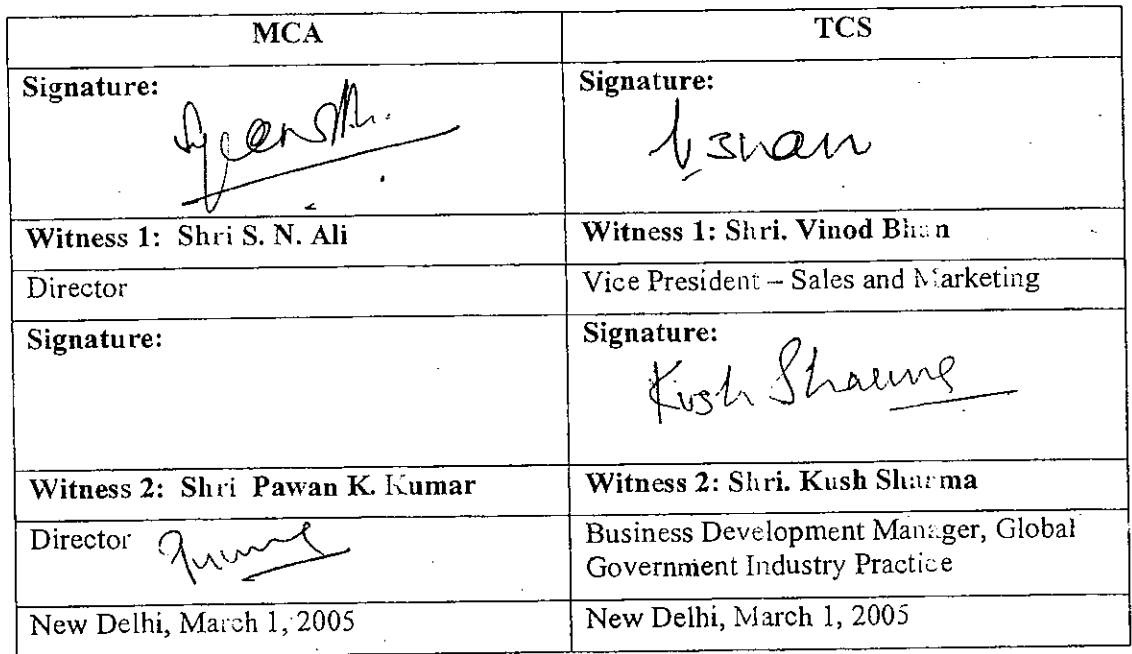 MCA
TCS
Signature:
Signature:
Witness 1: Shri S. N. Ali
Witness 1: Shri. Vinod Bhan
Director
Vice President – Sales and Marketing
Signature:
Signature:
Kush Sharma
Witness 2: Shri Pawan K. Kumar
Witness 2: Shri. Kush Sharma
Director
Business Development Manager, Global
Government Industry Practice
New Delhi, March 1, 2005
New Delhi, March 1, 2005